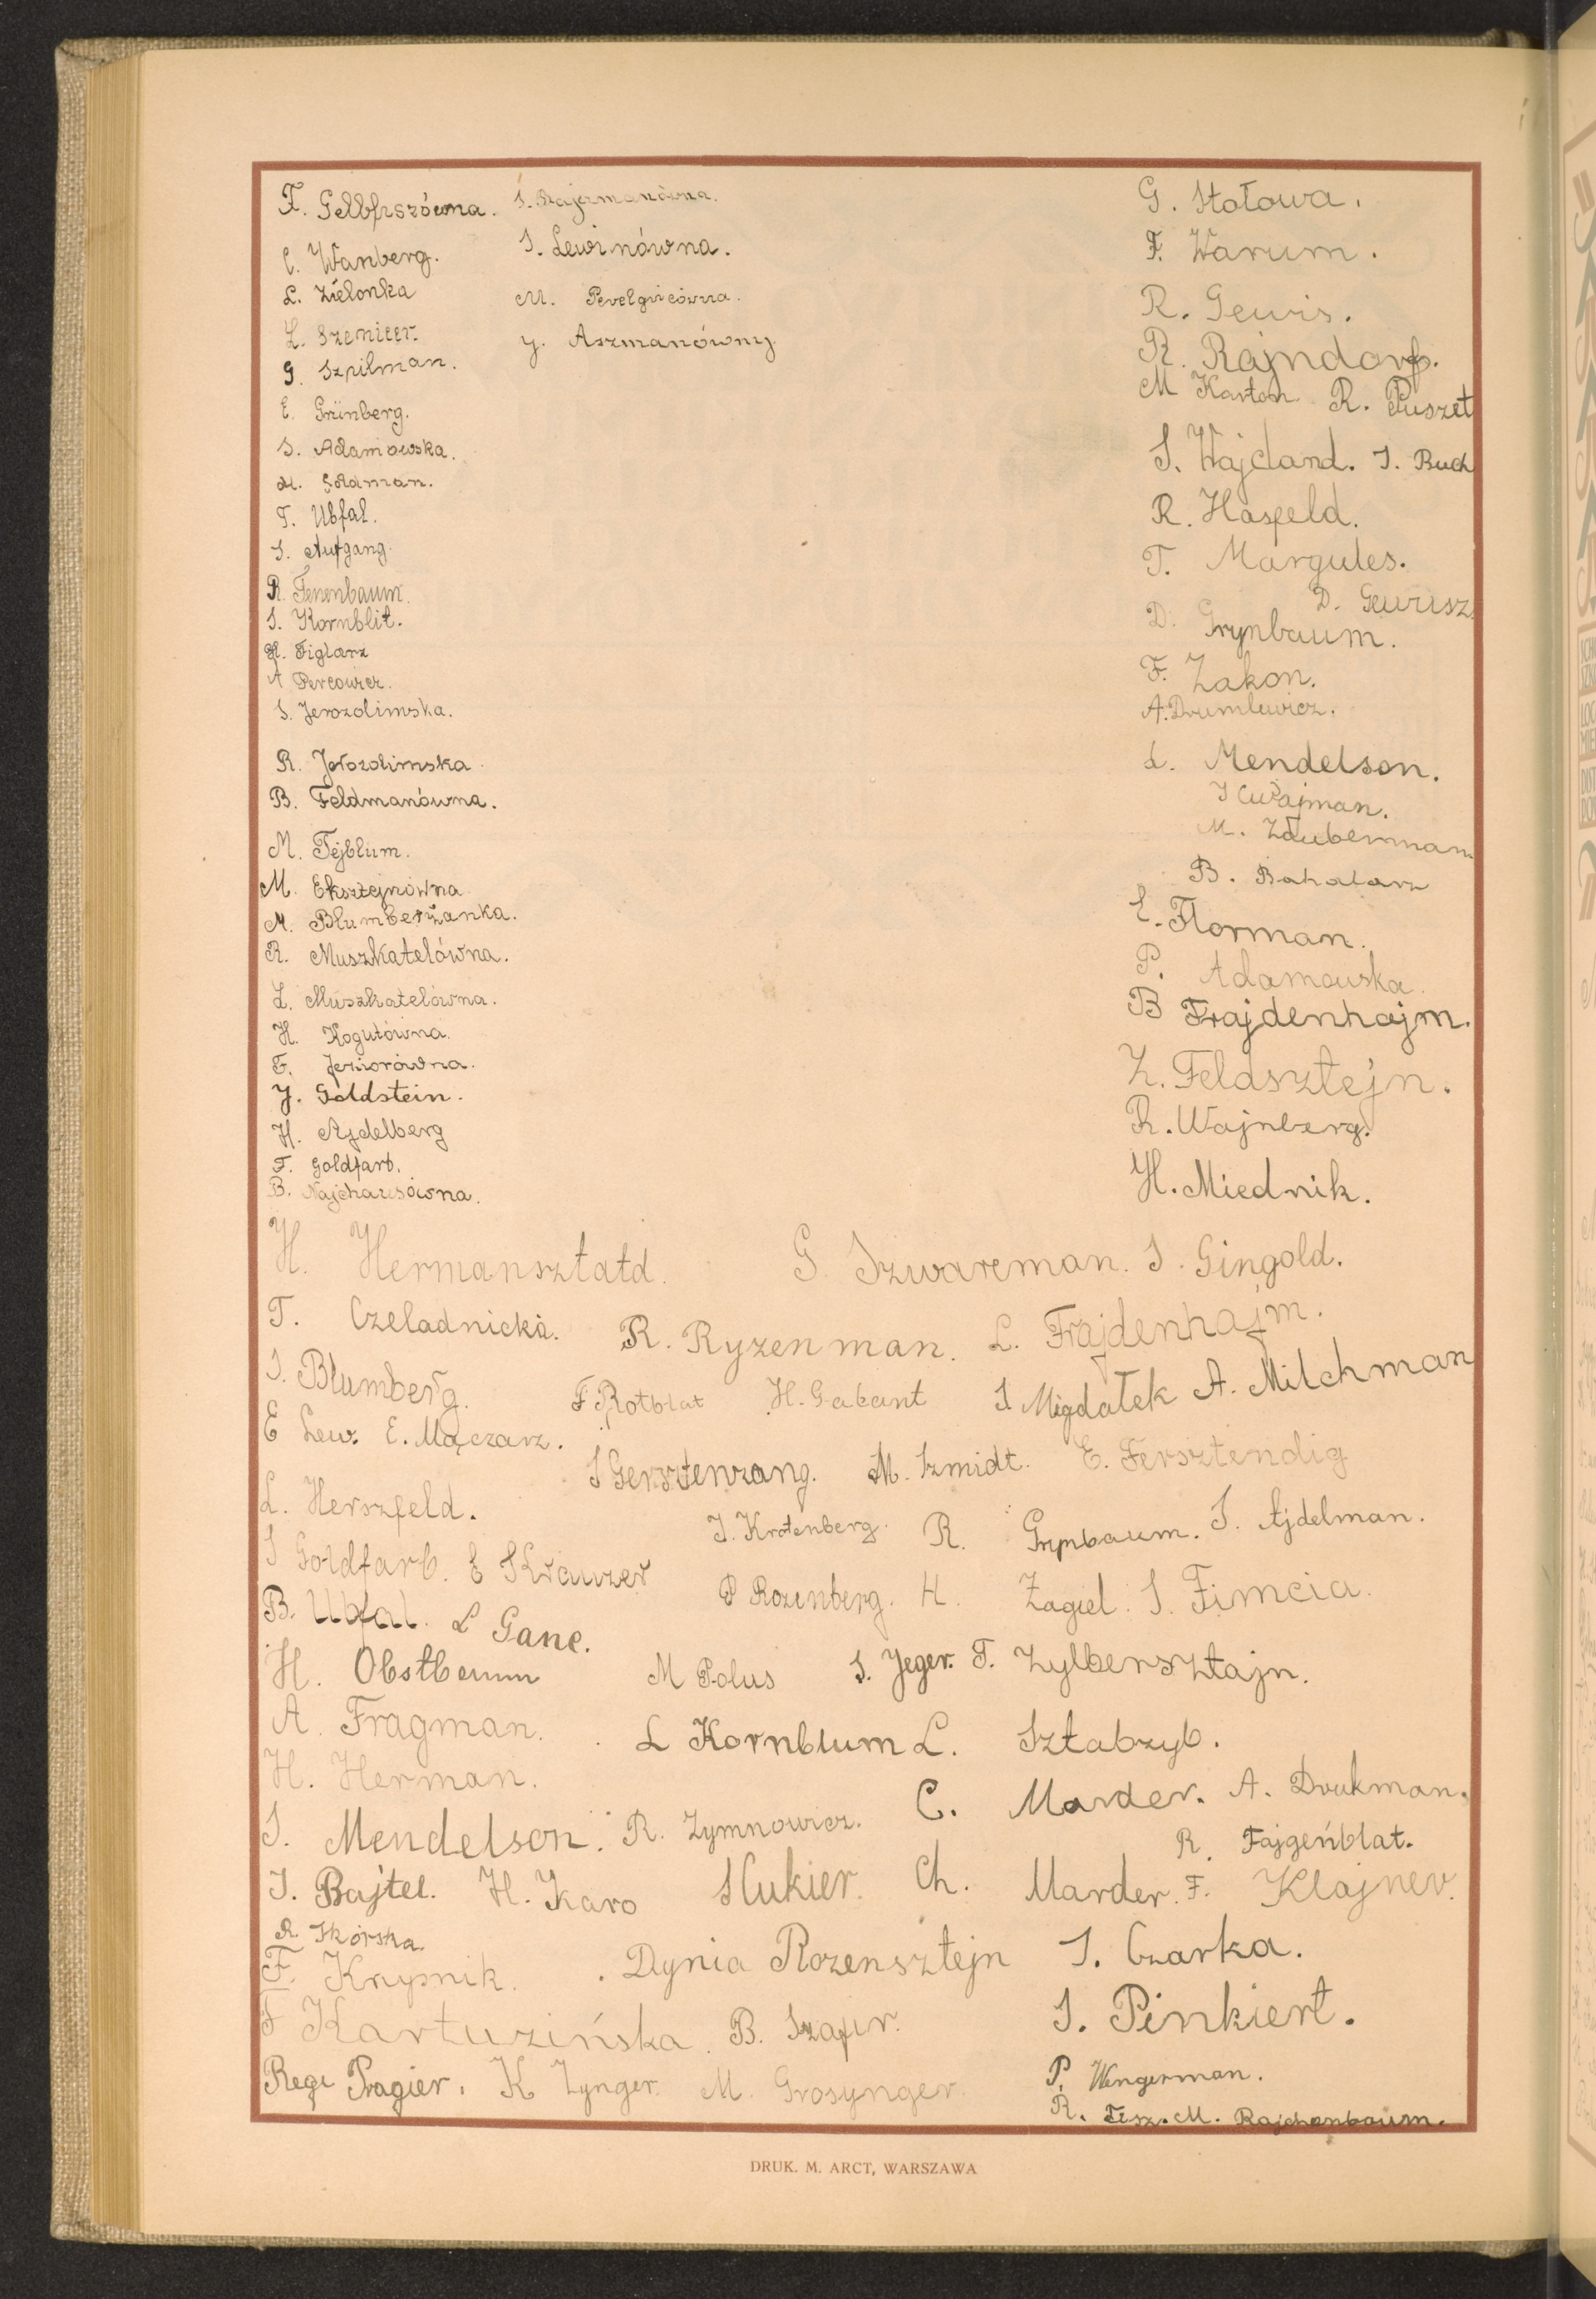 F. Gelbfiszówna. S. Bajermanówna.
C. Wanberg. S. Lewinówna.
L. Zielonka M.
L. Szenicer. J. Aszmanówny
G. Szpilman.
E. Grünberg.
S. Adamowska.
M. Goldman.
T. Ubfal.
S. Aufgang.
R. Tenenbaum.
S. Kornblit.
H. Figlarz
A Percowicz.
S. Jerozolimska.
R. Jerozolimska.
B. Feldmanówna.
M. Tejblum.
M. Eksztejnówna
M. Blumberżanka.
R. Muszkatelówna.
L. Muszkatelówna.
H. Kogutówna.
F. Jeziorówna.
J. Goldstein.
H. Ajdelberg
F. Goldfarb.
B. Najchausówna.
G. Stołowa.
F. Warum.
R. Gewis.
R. Rajndorf.
M Karton R. Puszet
S. Wajcland. S. Buch
R. Hasfeld.
T. Margules.
D. Gewisz.
D. Grynbaum.
F. Zakon.
A. Drumlewicz.
L. Mendelson.
M. Złaubermann
B. Bahalarz
E. Florman.
P. Adamowska.
B Frajdenhajm.
Z. Feldsztejn.
R. Wajnberg.
H. Miednik.
H. Hermansztatd. G. Szwarcman. S. Gingold.
T. Czeladnicka. R. Ryzenman. L. Frajdenhajm.
S. Blumberg. F Rotblat H. Gabant S Migdałek A. Milchman
E Lew. E. Mączarz. S Gersztenzang. M. Szmidt. E. Fersztendig
L. Herszfeld. J. Krotenberg. R. Grynbaum. S. Ajdelman.
S Goldfarb. E S Krawzer P Rozenberg. H. Żagiel. S. Fimcia.
B. Ubfal. L Ganc.
H. Obstbaum M Polus S. Jeger. T. Zylbersztajn.
A. Fragman. L Kornblum L. Sztabzyb.
H. Herman. C. Marder. A. Drukman.
S. Mendelson. R. Zymnowicz. R. Fajgenblat.
S. Bajtel. H. Karo S Cukier. Ch. Marder. F. Klajner.
R. Skórska.
F. Krypnik. Dynia Rozensztejn S. Czarka.
F Kartuzińska. B. Szafir. S. Pinkiert.
Regi Pragier. K Zynger. M. Grosynger. P. Wengerman.
R. Fisz. M. Rajchenbaum.
DRUK. M. ARCT, WARSZAWA